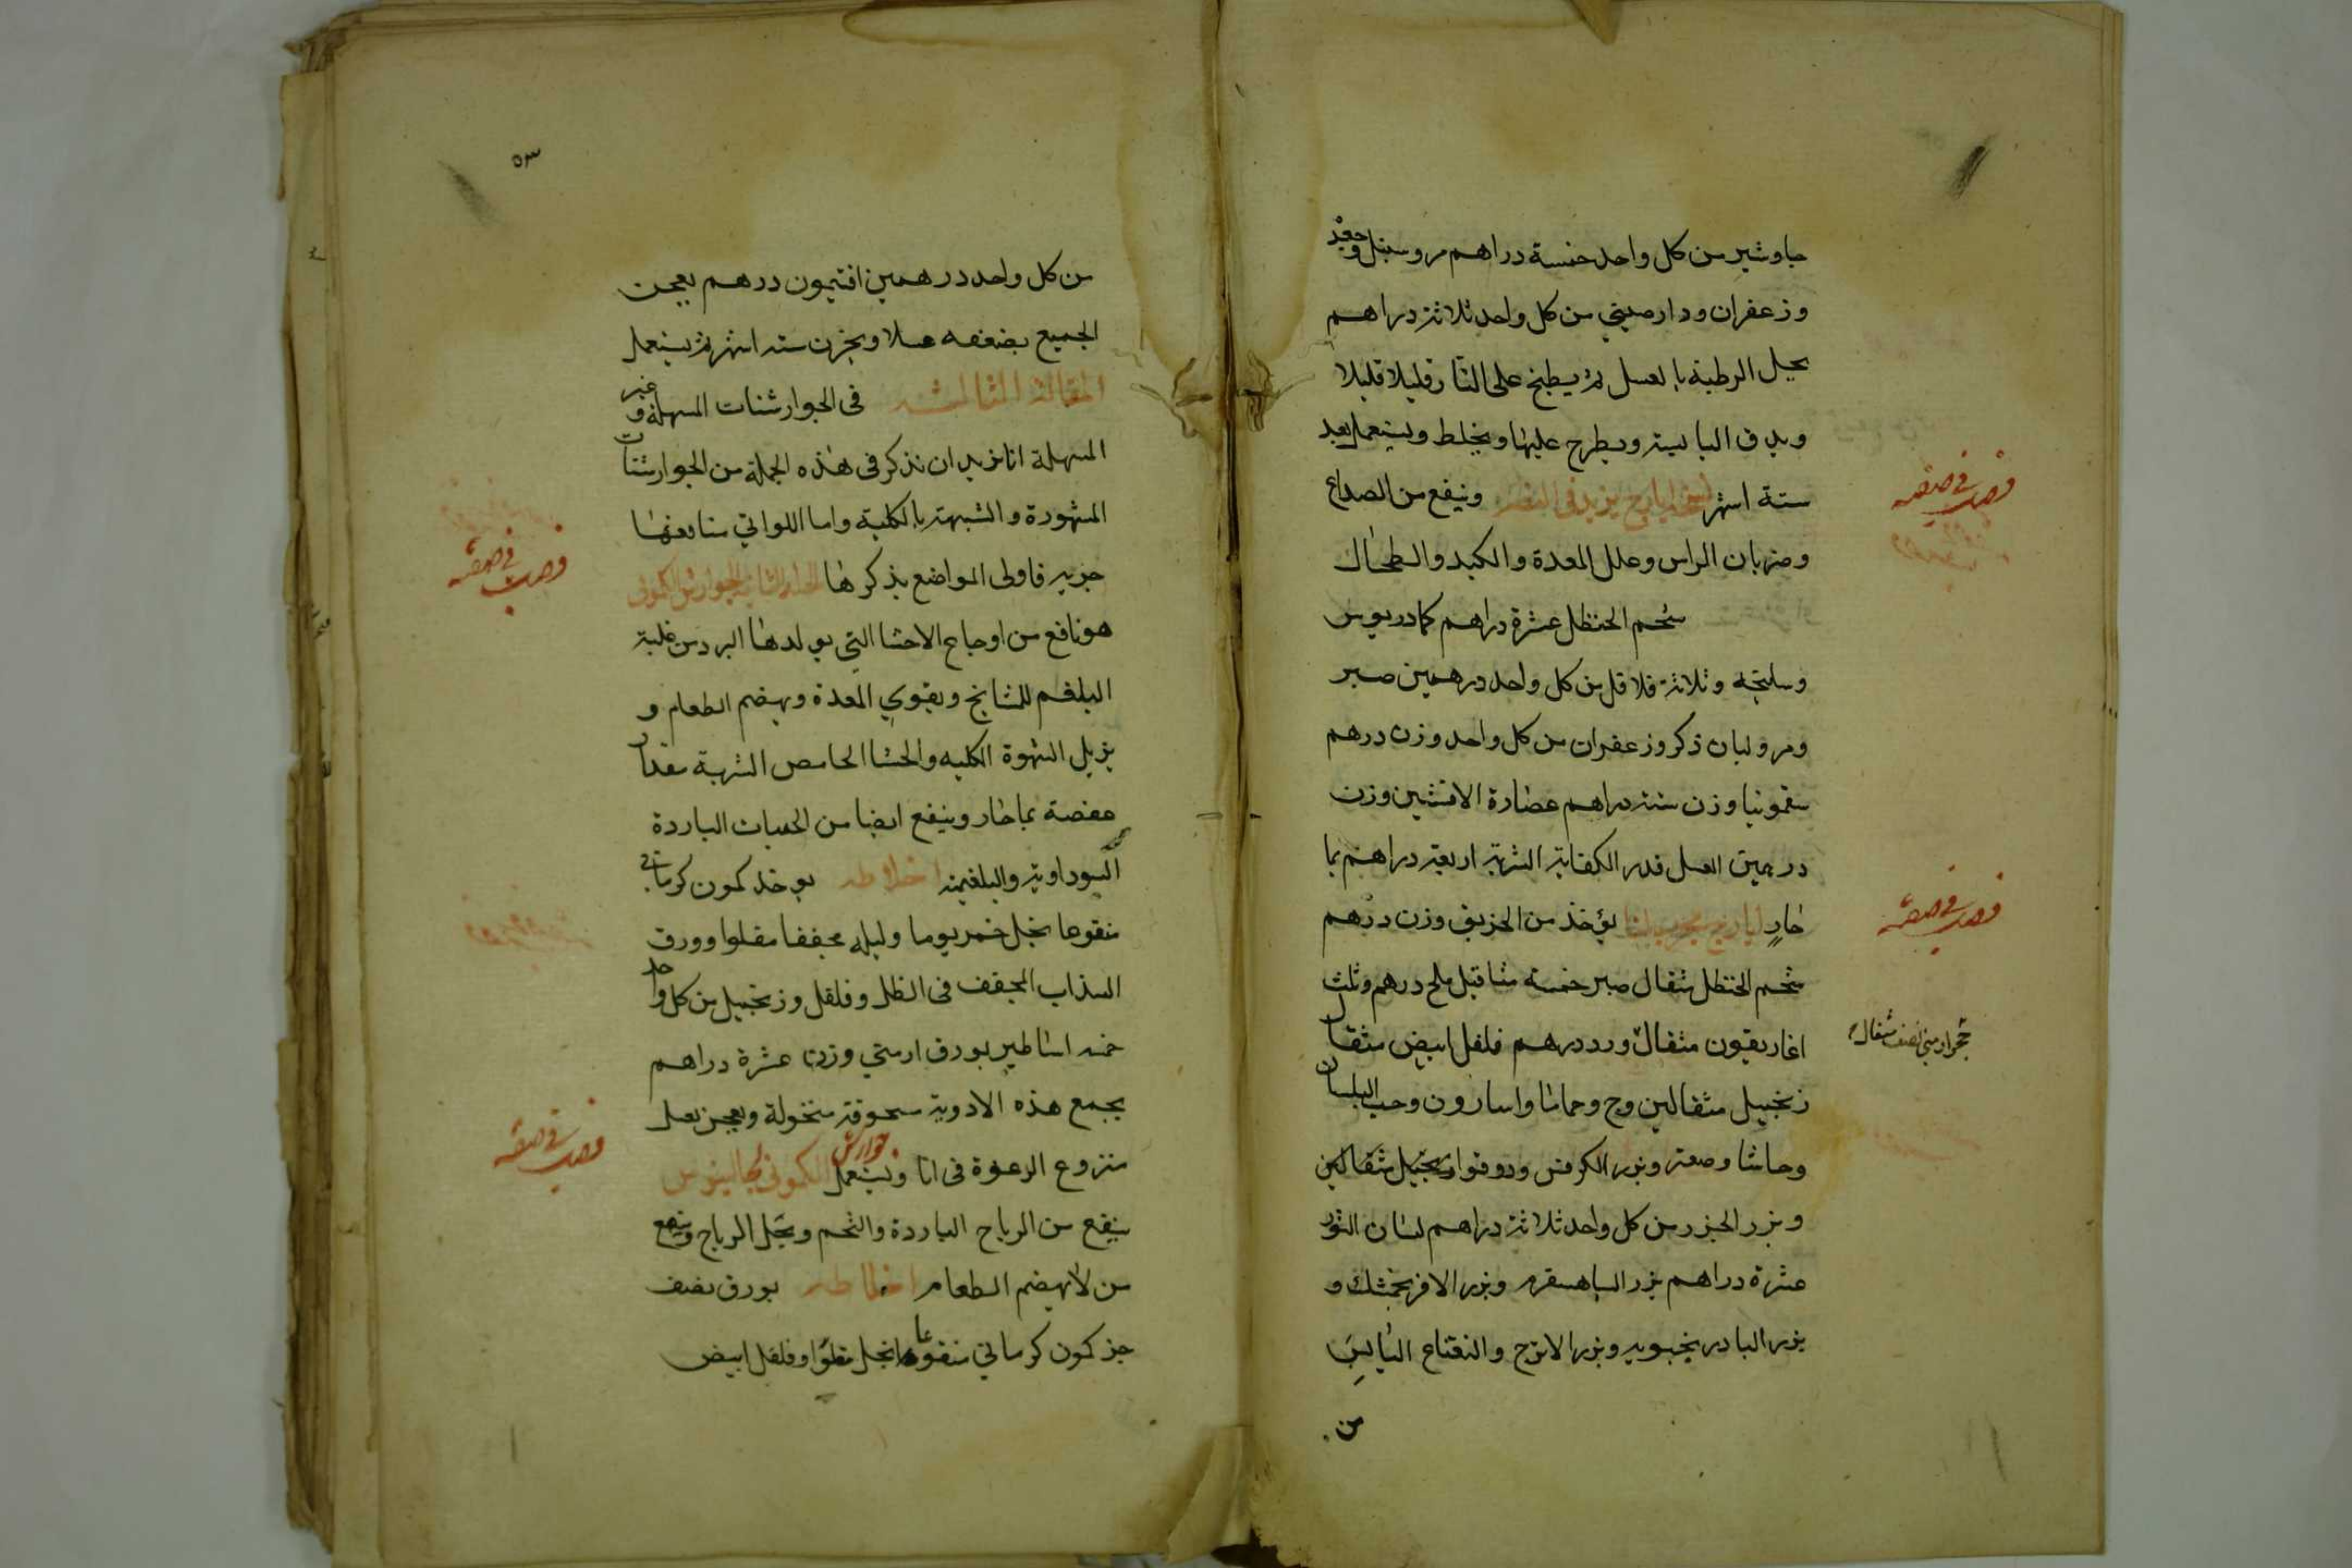 جاوشير من كل واحد خمسة دراهم مر وسنبل وجعد
وزعفران ودارصيني من كل واحد ثلاثة دراهم
يحل الرطبة بالعسل ثم يطبخ على النار قليلا قليلا
ويدق اليابسة ويطرح عليها ويخلط ويستعمل بعد
ستة اشهر ايارج يزيد في البصر وينفع من الصداع
وضربان الراس وعلل المعدة والكبد والطحال
شحم الحنظل عشرة دراهم كمادريوس
وسليخه وثلاثة فلافل من كل واحد درهمين صبر
ومر ولبان ذكر وزعفران من كل واحد وزن درهم
سقمونيا وزن ستة دراهم عصارة الافسنتين وزن
درهمين العسل قدر الكفاية الشربة اربعة دراهم بما
حار ايارج مجرب لنا يؤخذ من الخربق وزن درهم
شحم الحنظل مثقال صبر خمسة مثاقيل ملح درهم وثلث
اغاريقون مثقال ورد درهم فلفل ابيض مثقال
حجر ارمني نصف مثقال
زنجبيل مثقالين وج وحماما واسارون وحب البلسان
وحاشا وصعتر وبزر الكرفس ودوقوا وزنجبيل مثقالين
وبزر الجزر من كل واحد ثلاثة دراهم لسان الثور
عشرة دراهم بزر الباهسقرم وبزر الافرنجمشك و
بزر البادرنجبويه وبزر الاترج والنفتاح اليابس
من
٥٣
من كل واحد درهمين افتيمون درهم يعجن
الجميع بضعفه عسلا ويخزن سته اشهر ثم يستعمل
المقالة الثالثة في الجوارشنات المسهلة وغير
المسهلة انا نريد ان نذكر في هذه الجملة من الجوارشنات
المشهورة والشبيهة بالكلية واما اللواتي منافعها
جزيه فاولى المواضع بذكرها الجوارش الكموني
هو نافع من اوجاع الاحشا التي يولدها البرد من غلبة
البلغم للمشايخ ويقوي المعدة ويهضم الطعام و
يزيل الشهوة الكلبيه والجشا الحامض الشربة مقدار
عفصة بما حار وينفع ايضا من الحميات الباردة
السوداوية والبلغمية اخلاطه يوخذ كمون كرماني
منقوعا بخل خمر يوما وليله مجففا مقلوا وورق
السذاب المجفف في الظل وفلفل وزنجبيل من كل واحد
خمسه اساطير بورق ارمني وزن عشرة دراهم
يجمع هذه الادوية مسحوقة منخولة ويعجن بعسل
منزوع الرغوة في انا ويستعمل جوارش الكموني لجالينوس
ينفع من الرياح الباردة والتخم ويحل الرياح وينفع
من لا يهضم الطعام اخلاطه بورق نصف
جز كمون كرماني منقوعا بخل مقلوا وفلفل ابيض